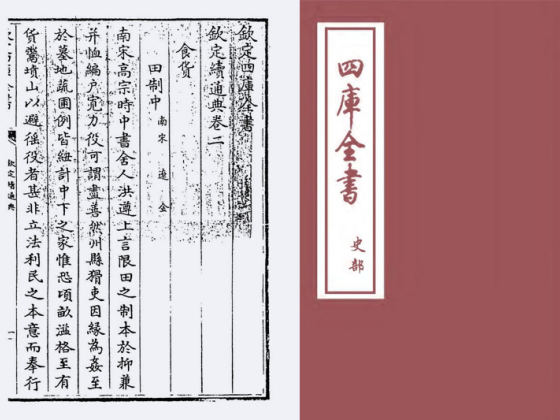 欽定四庫全書
欽定續通典卷二
食貨
田制中 南宋 遼 金
南宋高宗時中書舍人洪遵上言限田之制本於抑兼
并恤編户寛力役可謂盡善然州縣猾吏因緣為姦至
於墓地蔬圃例皆紐計中下之家惟恐頃畝溢格至有
貨鬻墳山以避徭役者甚非立法利民之本意而奉行
欽定續通典
一
四庫全書
史部